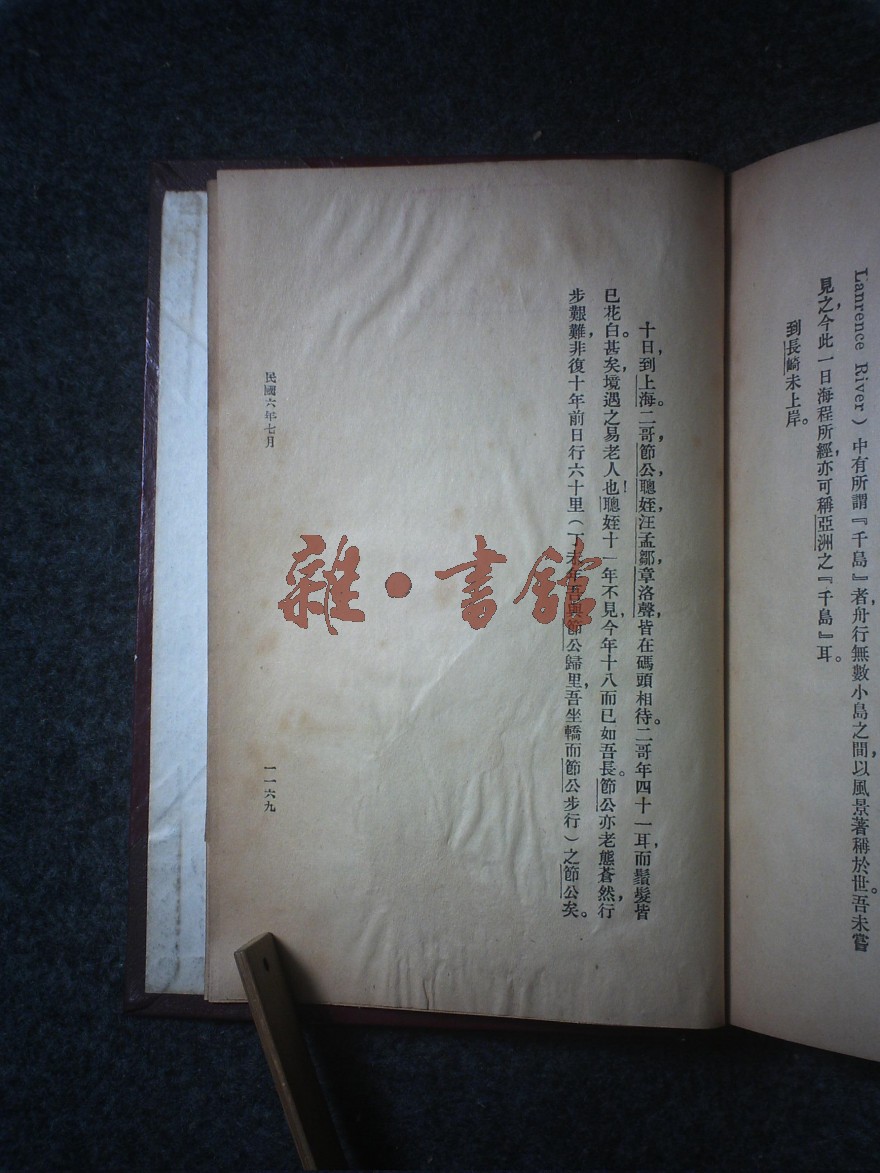 Lanrence River）中有所謂『千島』者，舟行無數小島之間，以風景著稱於世。吾未嘗
見之，今此一日海程所經，亦可稱亞洲之『千島』耳。
到長崎未上岸。
十日，到上海。二哥，節公，聰姪，汪孟鄒，章洛聲，皆在碼頭相待。二哥年四十一耳，而鬚髮皆
已花白。甚矣，境遇之易老人也！聰姪十一年不見，今年十八而已如吾長。節公亦老態蒼然，行
步艱難，非復十年前日行六十里（丁未年吾與節公歸里，吾坐轎而節公步行）之節公矣。
民國六年七月
一一六九
雜·書館